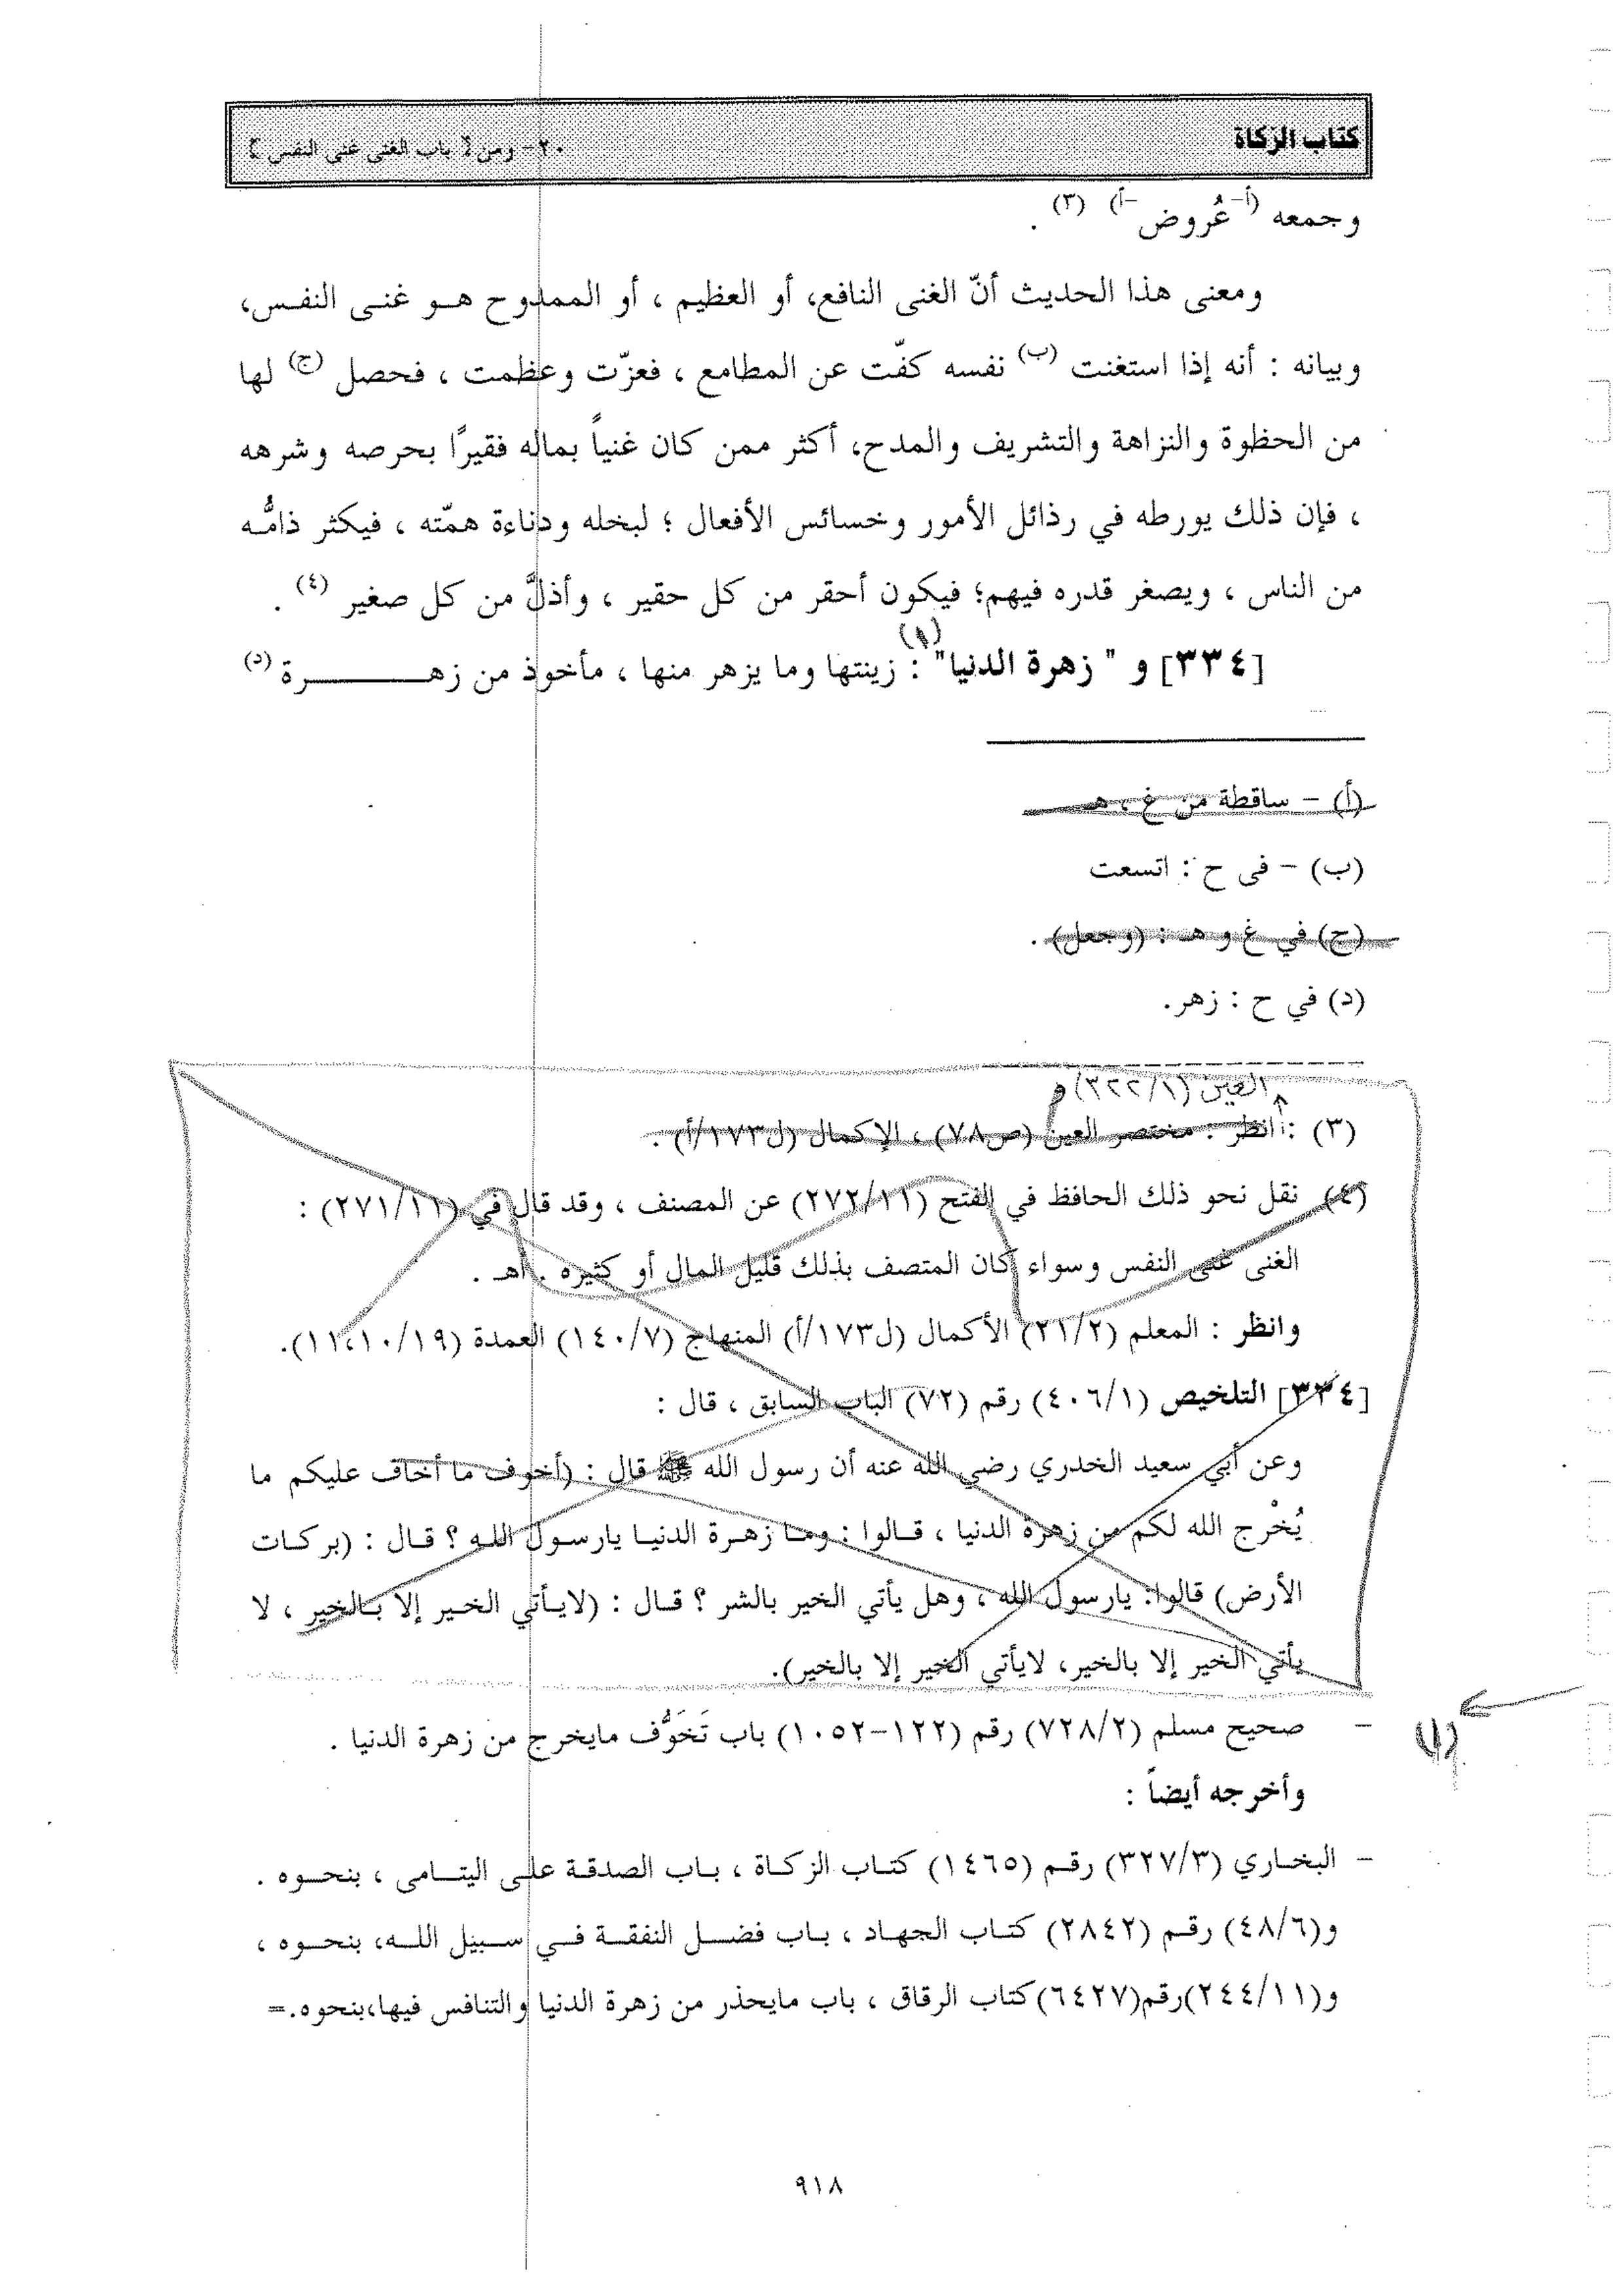 كتاب الزكاة
٢٠- ومن [ باب الغنى غنى النفس ]
وجمعه (أ- عُروض -أ) (٣) .
ومعنى هذا الحديث أنّ الغنى النافع، أو العظيم ، أو الممدوح هـو غنـى النفـس،
وبيانه : أنه إذا استغنت (ب) نفسه كفّت عن المطامع ، فعزّت وعظمت ، فحصل (ج) لها
من الحظوة والنزاهة والتشريف والمدح، أكثر ممن كان غنياً بماله فقيرًا بحرصه وشرهه
، فإن ذلك يورطه في رذائل الأمور وخسائس الأفعال ؛ لبخله ودناءة همّته ، فيكثر ذامُّـه
من الناس ، ويصغر قدره فيهم؛ فيكون أحقر من كل حقير ، وأذلَّ من كل صغير (٤) .
(١)
[٣٣٤] و " زهرة الدنيا" : زينتها وما يزهر منها ، مأخوذ من زهـــــــرة (د)
(أ) – ساقطة من غ ، هـ
(ب) – فى ح : اتسعت
(ج) في غ و هـ : (وجعل) .
(د) في ح : زهر.
العين (٣٢٢/١) و
(٣) : انظر : مختصر العين (ص٧٨) ، الإكمال (ل١٧٣/أ) .
(٤) نقل نحو ذلك الحافظ في الفتح (٢٧٢/١١) عن المصنف ، وقد قال في (٢٧١/١١) :
الغنى غنى النفس وسواء كان المتصف بذلك قليل المال أو كثيره . اهـ .
وانظر : المعلم (٢١/٢) الأكمال (ل١٧٣/أ) المنهاج (١٤٠/٧) العمدة (١١،١٠/١٩).
[٣٣٤] التلخيص (٤٠٦/١) رقم (٧٢) الباب السابق ، قال :
وعن أبي سعيد الخدري رضي الله عنه أن رسول الله ﷺ قال : (أخوف ما أخاف عليكم ما
يُخْرج الله لكم من زهرة الدنيا ، قـالوا : ومـا زهـرة الدنيـا يارسـول اللـه ؟ قـال : (بركـات
الأرض) قالوا: يارسول الله ، وهل يأتي الخير بالشر ؟ قـال : (لايـأتي الخـير إلا بـالخير ، لا
يأتي الخير إلا بالخير، لايأتي الخير إلا بالخير).
(١) – صحيح مسلم (٧٢٨/٢) رقم (١٢٢–١٠٥٢) باب تَخَوُّف مايخرج من زهرة الدنيا .
وأخرجه أيضاً :
– البخـاري (٣٢٧/٣) رقـم (١٤٦٥) كتـاب الزكـاة ، بـاب الصدقـة علـى اليتـامى ، بنحـوه .
و(٤٨/٦) رقـم (٢٨٤٢) كتـاب الجهـاد ، بـاب فضـل النفقـة فـي سـبيل اللـه، بنحـوه ،
و(٢٤٤/١١)رقم(٦٤٢٧)كتاب الرقاق ، باب مايحذر من زهرة الدنيا والتنافس فيها،بنحوه.=
٩١٨